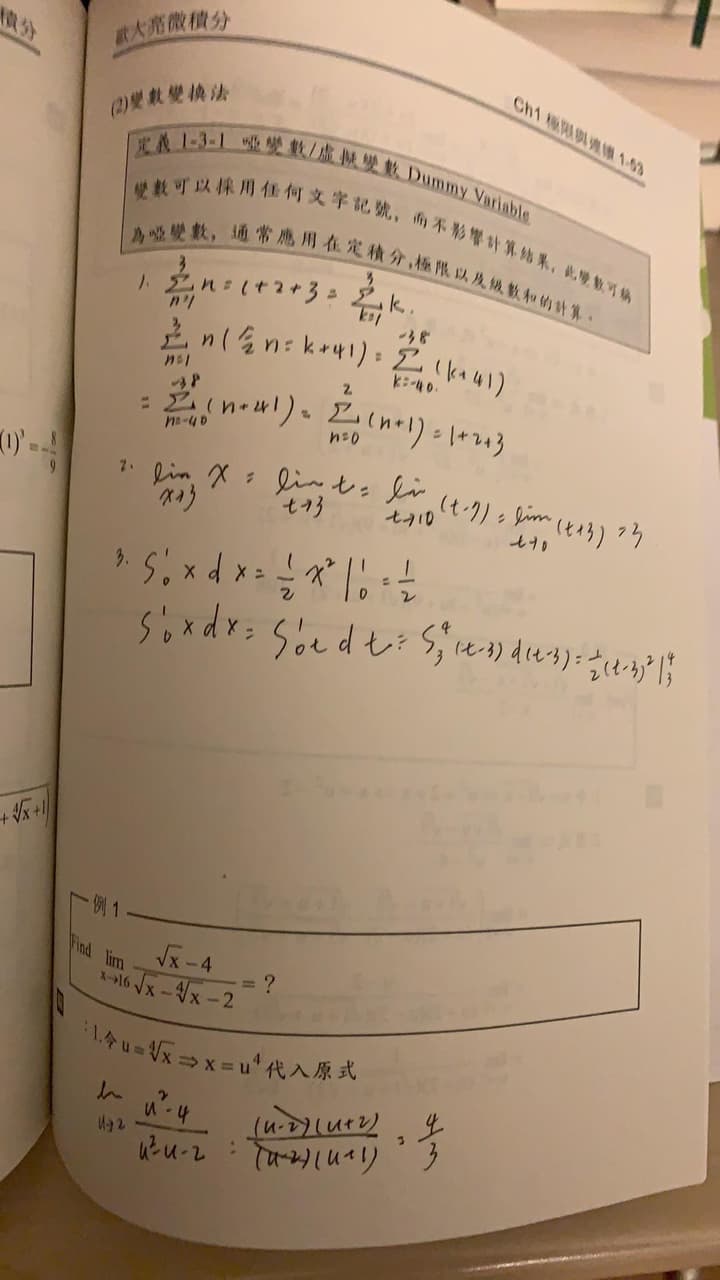 積分
歐大亮微積分
Ch1 極限與連續 1-53
(2)變數變換法
定義 1-3-1 啞變數/虛擬變數 Dummy Variable
變數可以採用任何文字記號，而不影響計算結果，此變數可稱
為啞變數，通常應用在定積分,極限以及級數和的計算。
1. ∑_{n=1}^{3} n = 1+2+3 = ∑_{k=1}^{3} k.
∑_{n=1}^{3} n (令 n = k+41) = ∑_{k=-40}^{-38} (k+41)
= ∑_{n=-40}^{-38} (n+41) = ∑_{n=0}^{2} (n+1) = 1+2+3
2. lim_{x→3} x = lim_{t→3} t = lim_{t→10} (t-7) = lim_{t→0} (t+3) = 3
3. ∫_0^1 x dx = 1/2 x² |_0^1 = 1/2
∫_0^1 x dx = ∫_0^1 t dt = ∫_3^4 (t-3) d(t-3) = 1/2 (t-3)² |_3^4
(1)³ = -8/9
+ ∜x + 1)
例 1
Find lim_{x→16} (√x - 4)/(√x - ∜x - 2) = ?
: 1.令 u = ∜x ⇒ x = u⁴ 代入原式
lim_{u→2} (u²-4)/(u²-u-2) = (u-2)(u+2)/(u-2)(u+1) = 4/3